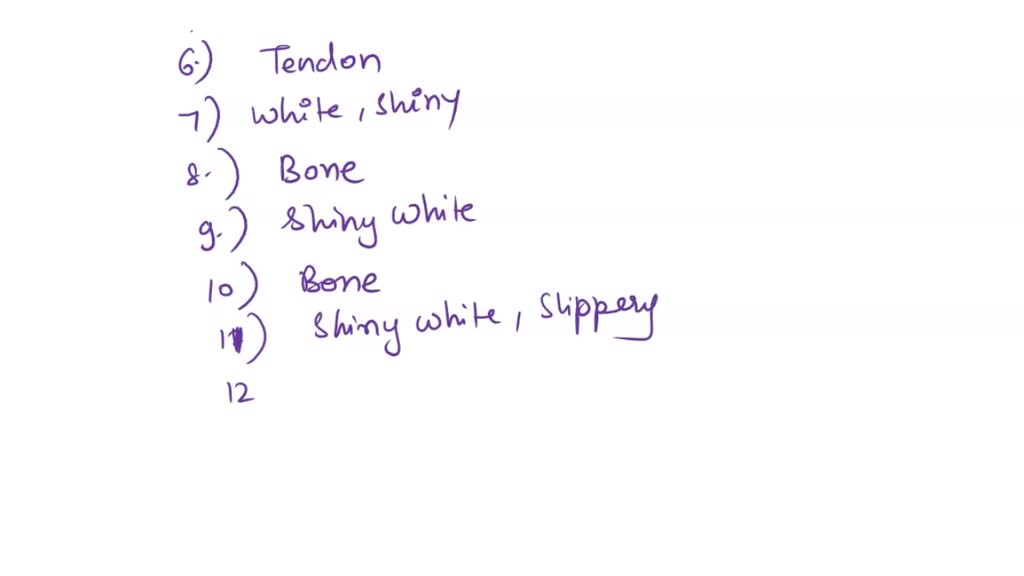 6.) Tendon
7) white, shiny
8.) Bone
9.) shiny white
10) Bone
11) shiny white, slippery
12